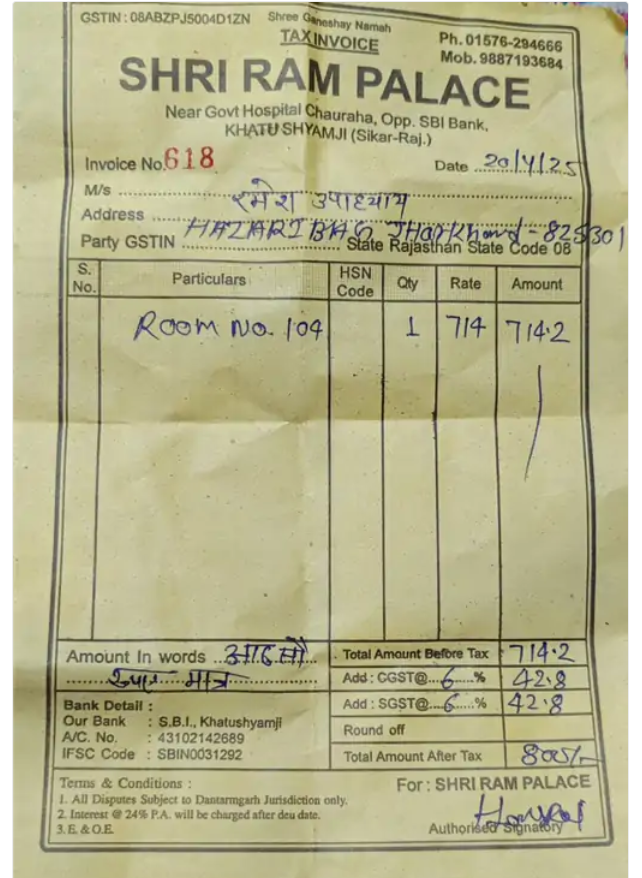 GSTIN : 08ABZPJ5004D1ZN Shree Ganeshay Namah Ph. 01576-294666
TAX INVOICE Mob. 9887193684
SHRI RAM PALACE
Near Govt Hospital Chauraha, Opp. SBI Bank,
KHATU SHYAMJI (Sikar-Raj.)
Invoice No. 618 Date 20/4/25
M/s रमेश उपाध्याय
Address HAZARIBAG JHARKhand - 825301
Party GSTIN State Rajasthan State Code 08
S. No. Particulars HSN Code Qty Rate Amount
Room No. 104 1 714 714.2
Amount In words आठ सौ Total Amount Before Tax 714.2
रुपए मात्र Add : CGST@ 6 % 42.8
Bank Detail : Add : SGST@ 6 % 42.8
Our Bank : S.B.I., Khatushyamji Round off
A/C. No. : 43102142689
IFSC Code : SBIN0031292 Total Amount After Tax 800/-
Terms & Conditions : For : SHRI RAM PALACE
1. All Disputes Subject to Dantarmgarh Jurisdiction only.
2. Interest @ 24% P.A. will be charged after deu date.
3. E. & O.E. Authorised Signatory